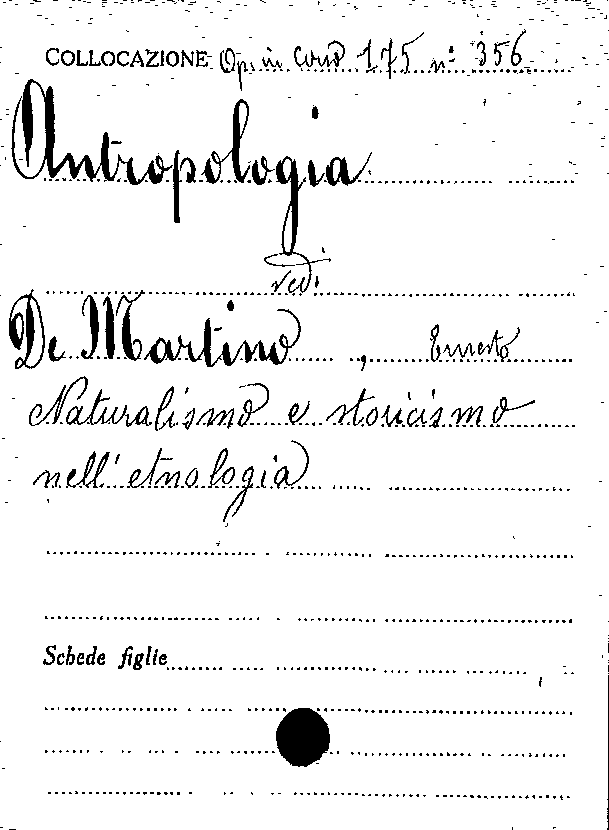 COLLOCAZIONE Op. in corso 175 n. 356
Antropologia
vedi
De Martino, Ernesto
Naturalismo e storicismo
nell'etnologia
Schede figlie